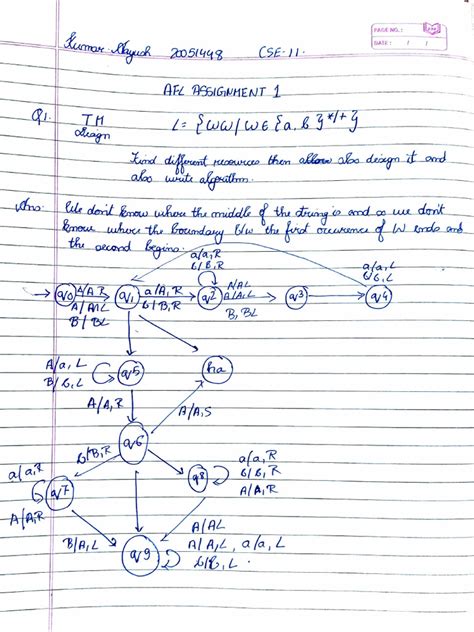 PAGE NO.:
DATE: / /
Kumar Aayush 20051448 CSE-11.
AFL ASSIGNMENT 1
Q1. TM Design L = {ww/w∈{a,b}*/+}
Find different resources then allow also design it and
also write algorithm.
Ans: We don't know where the middle of the string is and so we don't
know where the boundary b/w the first occurence of W ends and
the second begins.
a/a,R
b/B,R
a/a,L
b/b,L
q0 Δ/Δ R q1 a/A,R q2 A/A,L q3 q4
b/B,R
B, BL
A/a,L
B/b,L
q5 ha
A/A,R
A/A,S
q6
b/B,R
a/a,R
q7
A/A,R
q8
a/a,R
b/b,R
A/A,R
B/A,L
q9
A/AL
A/A,L, a/a,L
b/b,L